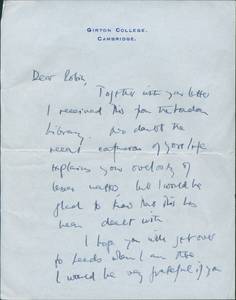 GIRTON COLLEGE,
CAMBRIDGE.
Dear Robin,
Together with your letter
I received this from the London
Library. No doubt the
recent expansion of your life
explains your overlooking of
lesser matters but I would be
glad to know that this has
been dealt with.
I hope you will get over
to Leeds when I am there
I would be very grateful if you